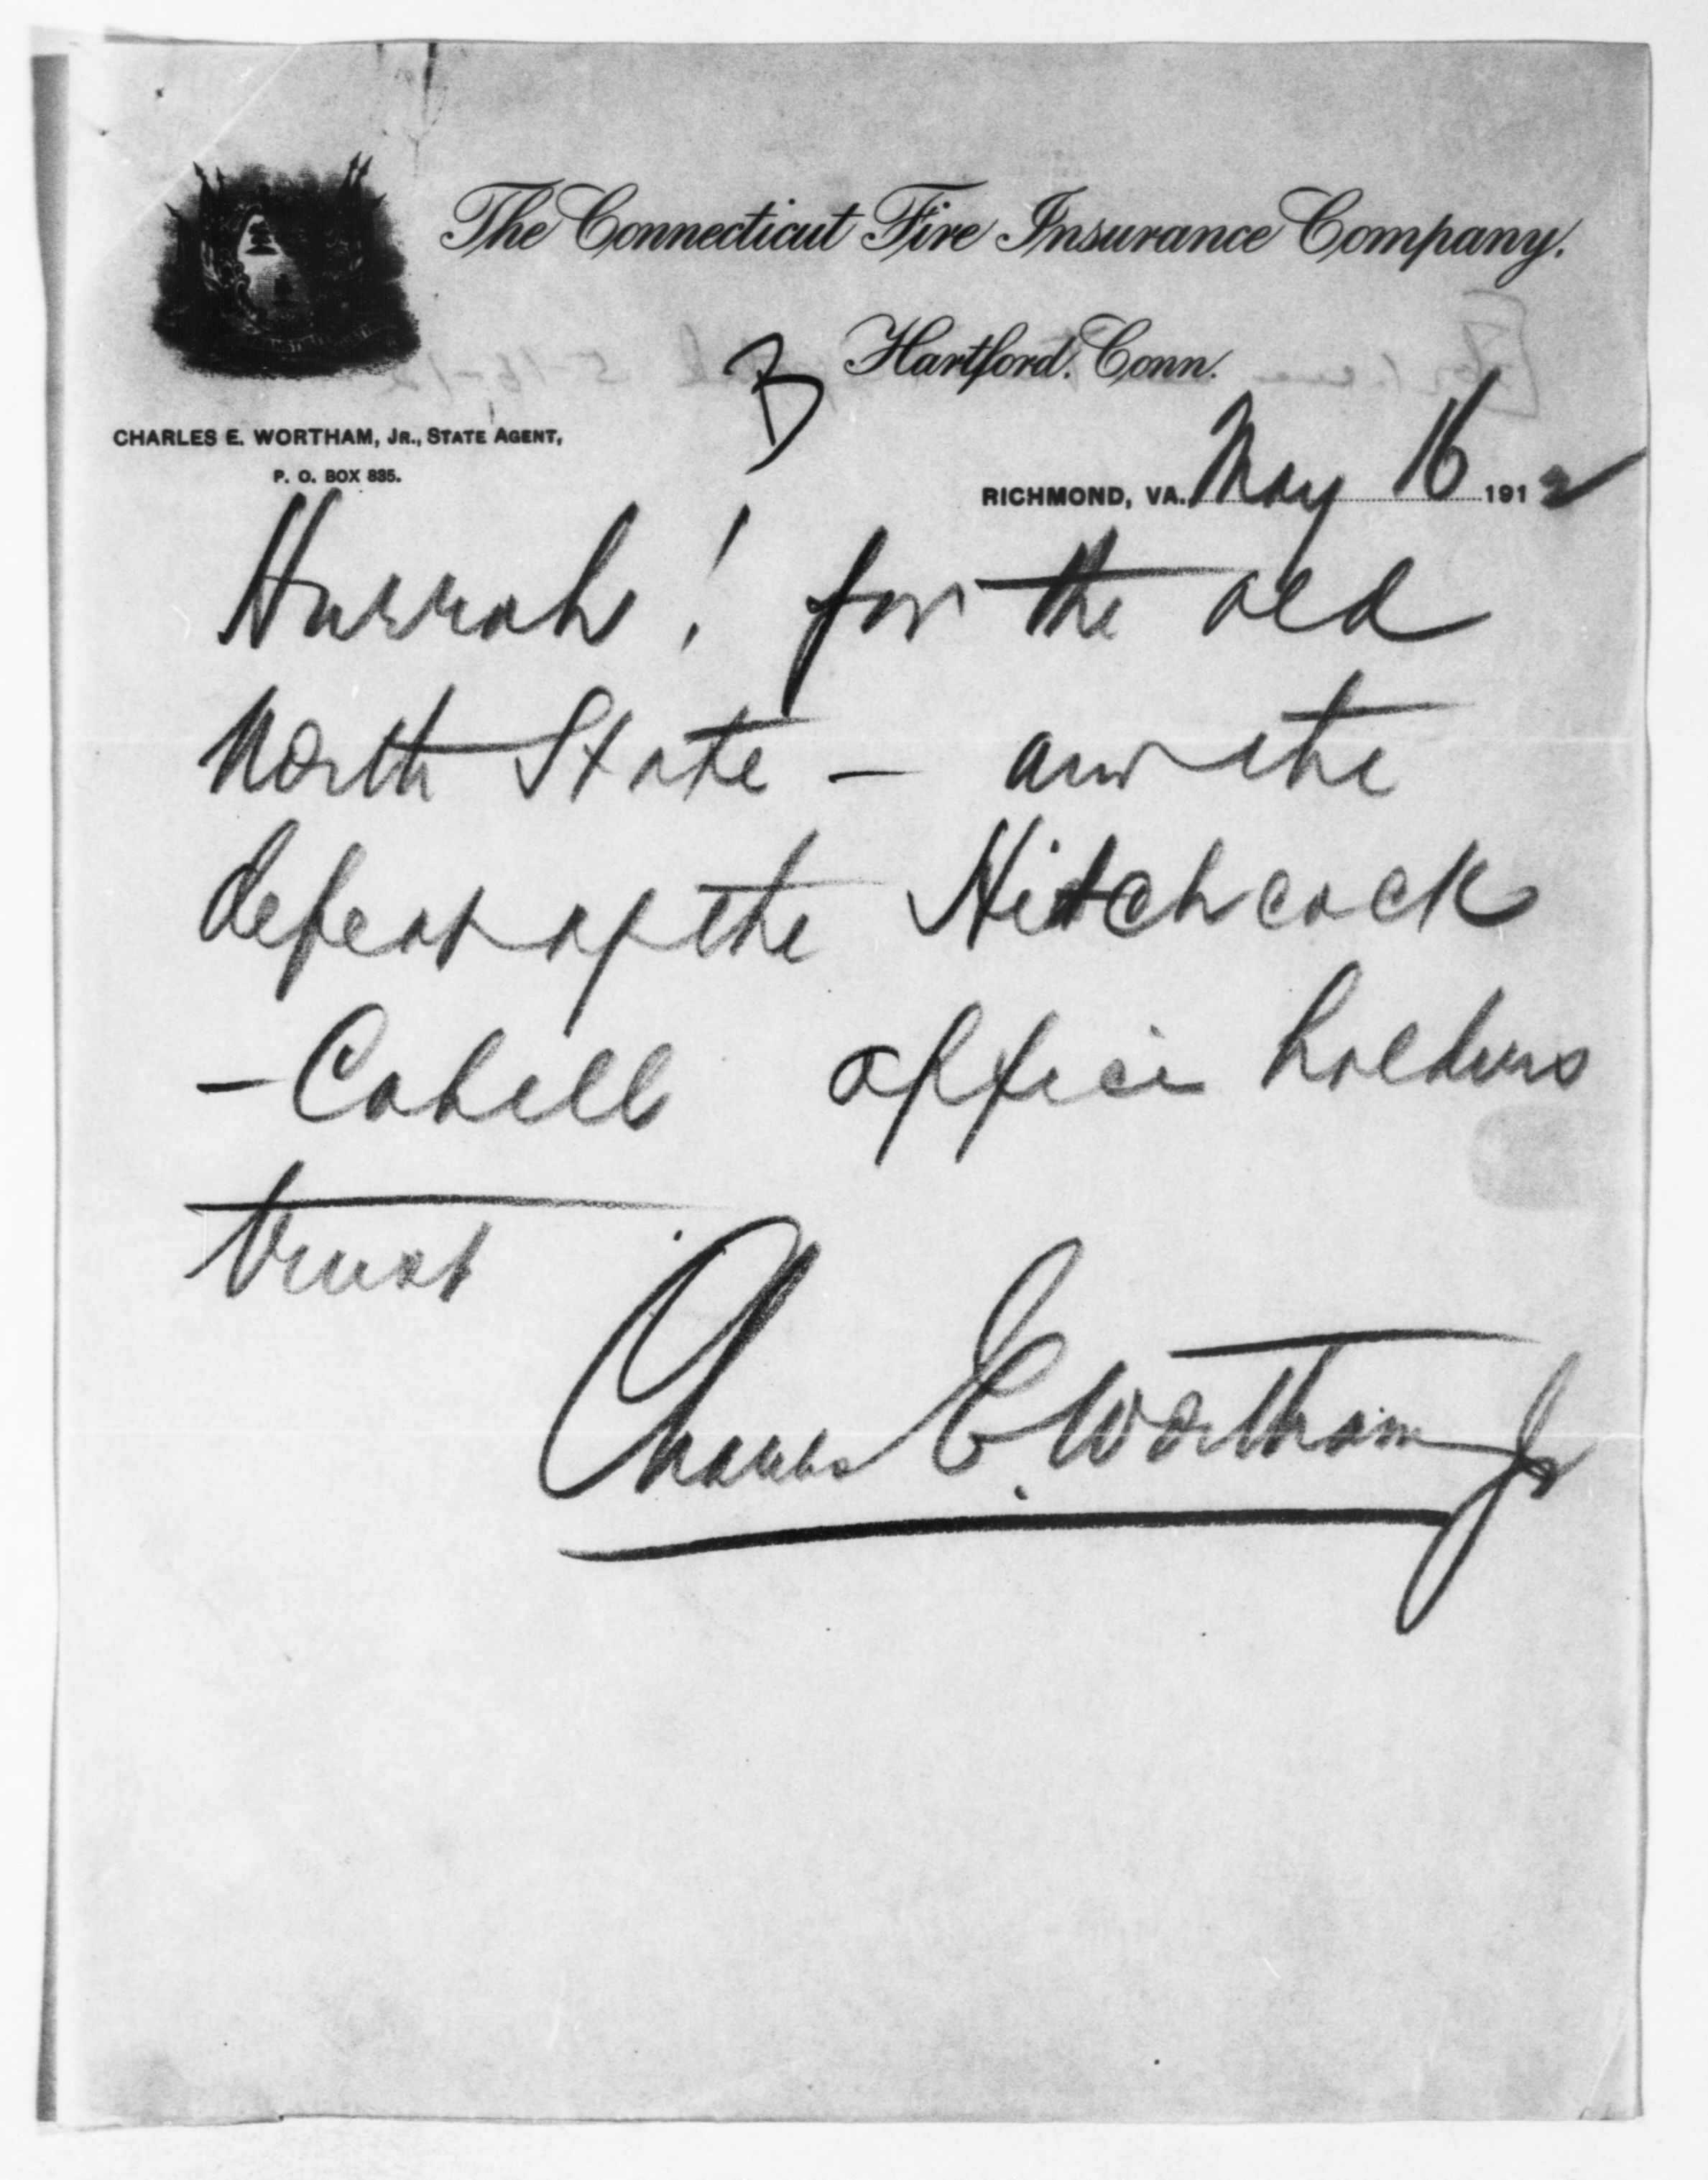 The Connecticut Fire Insurance Company.
Hartford. Conn.
B
CHARLES E. WORTHAM, JR., STATE AGENT,
P. O. BOX 835.
RICHMOND, VA. May 16 1912
Hurrah! for the old
North State - and the
defeat of the Hitchcock
- Cabell office holders
trust
Charles E. Wortham Jr